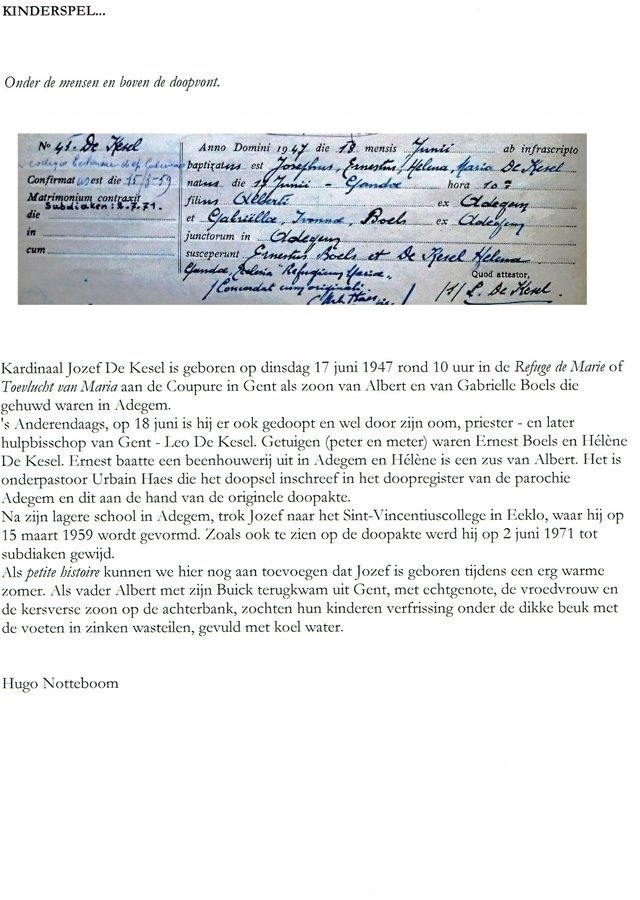 KINDERSPEL...
Onder de mensen en boven de doopvont.
No 45. De Kesel
Confirmatus est die 15/3-59
Matrimonium contraxit
Subdiaken: 2.7.71.
die
in
cum
Anno Domini 1947 die 18 mensis Junii ab infrascripto
baptizatus est Josephus, Ernestus, Helena, Maria De Kesel
natus die 17 Junii - Gandae hora 10
filius Alberti ex Adegem
et Gabriëllae, Ivonna, Boels ex Adegem
junctorum in Adegem
susceperunt Ernestus Boels et De Kesel Helena
Gandae, "Refugium Mariae" Quod attestor,
/Concordat cum originali. /s/ L. De Kesel.
Kardinaal Jozef De Kesel is geboren op dinsdag 17 juni 1947 rond 10 uur in de Refuge de Marie of
Toevlucht van Maria aan de Coupure in Gent als zoon van Albert en van Gabrielle Boels die
gehuwd waren in Adegem.
's Anderendaags, op 18 juni is hij er ook gedoopt en wel door zijn oom, priester - en later
hulpbisschop van Gent - Leo De Kesel. Getuigen (peter en meter) waren Ernest Boels en Hélène
De Kesel. Ernest baatte een beenhouwerij uit in Adegem en Hélène is een zus van Albert. Het is
onderpastoor Urbain Haes die het doopsel inschreef in het doopregister van de parochie
Adegem en dit aan de hand van de originele doopakte.
Na zijn lagere school in Adegem, trok Jozef naar het Sint-Vincentiuscollege in Eeklo, waar hij op
15 maart 1959 wordt gevormd. Zoals ook te zien op de doopakte werd hij op 2 juni 1971 tot
subdiaken gewijd.
Als petite histoire kunnen we hier nog aan toevoegen dat Jozef is geboren tijdens een erg warme
zomer. Als vader Albert met zijn Buick terugkwam uit Gent, met echtgenote, de vroedvrouw en
de kersverse zoon op de achterbank, zochten hun kinderen verfrissing onder de dikke beuk met
de voeten in zinken wasteilen, gevuld met koel water.
Hugo Notteboom